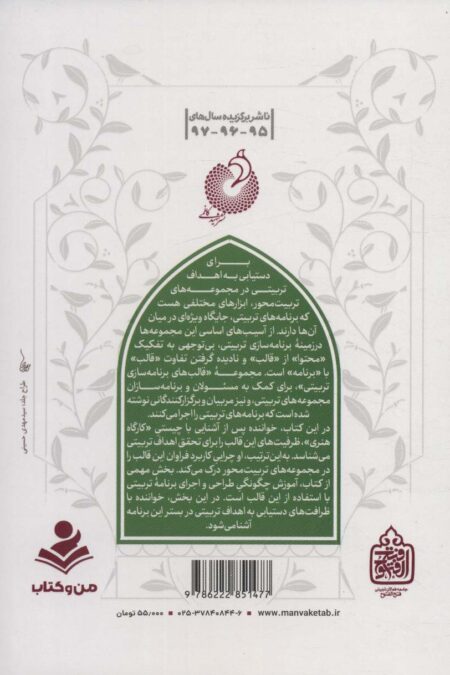 ناشر برگزیده سال‌های
۹۵-۹۶-۹۷
بـــــرای
دستیابی به اهداف
تربیتـــی در مجموعـــه‌های
تربیت‌محور، ابزارهای مختلفی هست
که برنامه‌های تربیتی، جایگاه ویژه‌ای در میان
آن‌ها دارند. از آسیب‌های اساسی این مجموعه‌ها
در زمینهٔ برنامه‌سازی تربیتی، بی‌توجهی به تفکیک
«محتوا» از «قالب» و نادیده گرفتن تفاوت «قالب»
با «برنامه» است. مجموعـــهٔ «قالب‌های برنامه‌سازی
تربیتی»، برای کمک به مسئولان و برنامه‌ســـازان
مجموعه‌های تربیتی، و نیز مربیان و برگزارکنندگانی نوشته
شده است که برنامه‌های تربیتی را اجرا می‌کنند.
در این کتاب، خواننده پس از آشنایی با چیستی «کارگاه
هنری»، ظرفیت‌های این قالب را برای تحقق اهداف تربیتی
می‌شناسد. به این ترتیب، او چرایی کاربرد فراوان این قالب را
در مجموعه‌های تربیت‌محور درک می‌کند. بخش مهمی
از کتاب، آموزش چگونگی طراحی و اجرای برنامهٔ تربیتی
با استفاده از این قالب است. در این بخش، خواننده با
ظرافت‌های دستیابی به اهداف تربیتی در بستر این برنامه
آشنا می‌شود.
طراح جلد: سیدمهدی حسینی
من و کتاب
9 786222 851477
www.manvaketab.ir ■ ۰۲۵-۳۷۸۴۰۸۴۴-۶ ■ ۵۵٫۰۰۰ تومان